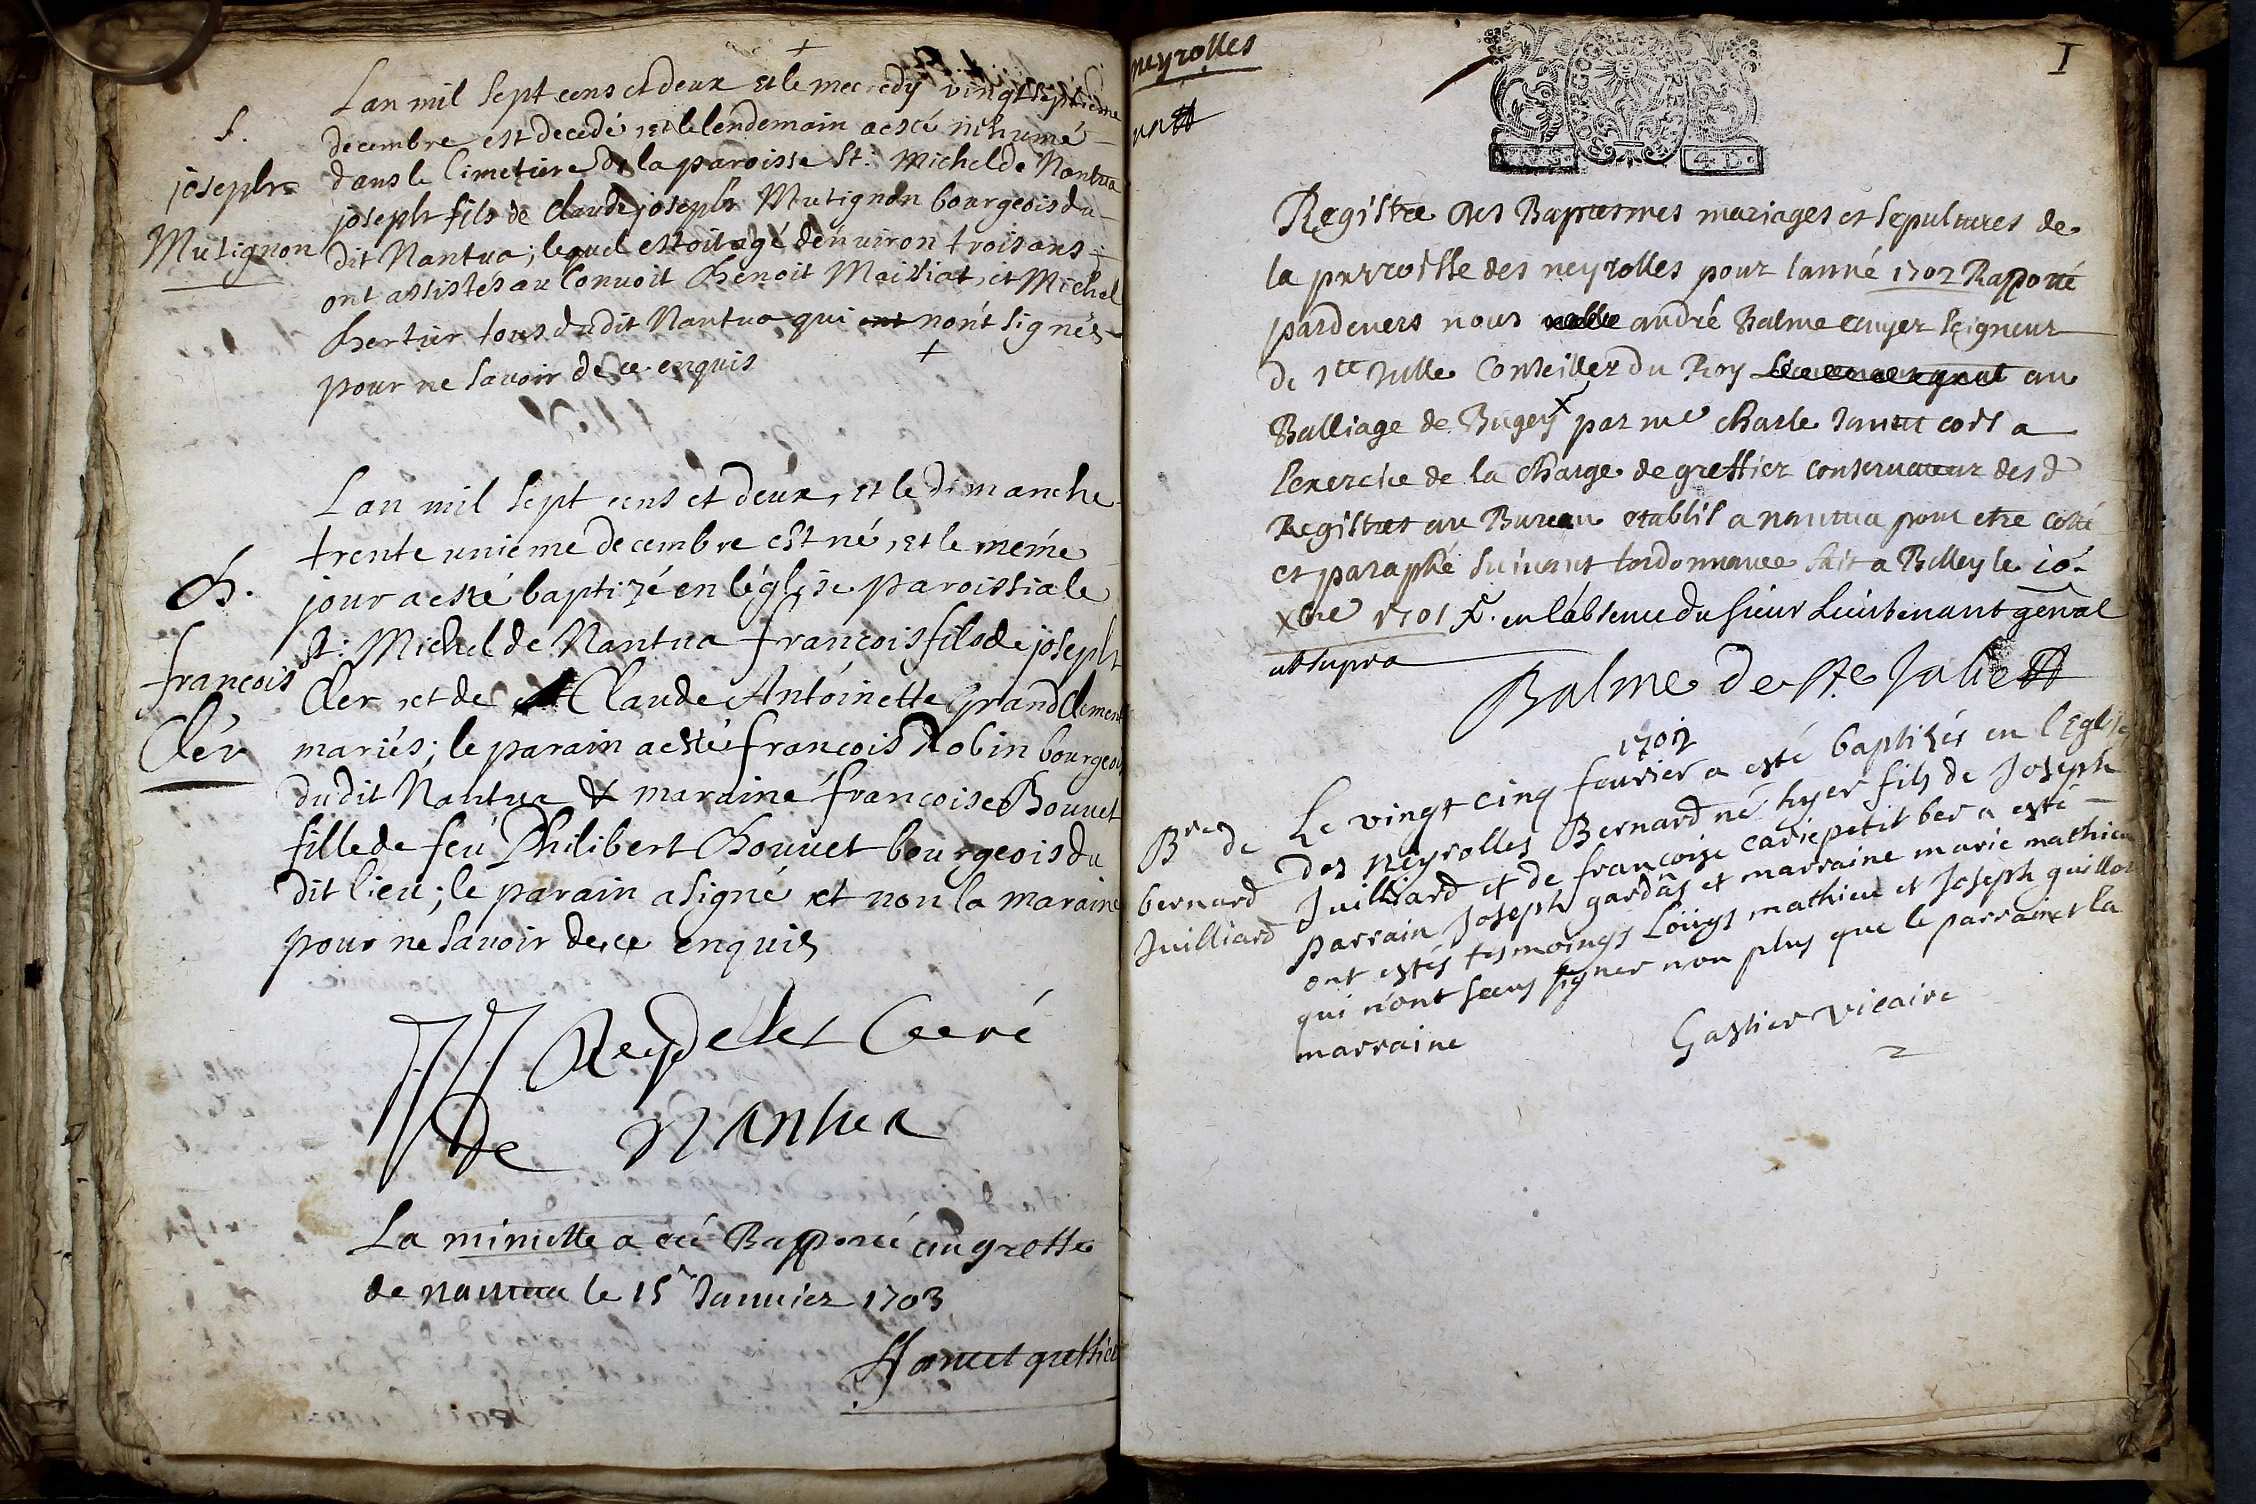 Lan mil sept cens et deux et le mecredy vingt septieme
decembre est decedé, et le lendemain a esté inhumé
dans le Cimetiere de la paroisse St. Michel de Nantua
joseph fils de Claude joseph Mutignon bourgeois du
dit Nantua; lequel estoit agé d'enuiron trois ans
ont assistés au Conuoit Benoit Mailliat, et Michel
Bertier tous dudit Nantua qui ont n'ont signés
pour ne sauoir de ce enquis
S.
joseph
Mutignon
Lan mil sept cens et deux, et le dimanche
trente unieme decembre est né, et le méme
jour a esté baptizé en léglise paroissiale
St: Michel de Nantua françois fils de joseph
Cler et de Claude Antóinette Grand Clement
mariés; le parain a esté françois Robin bourgeois
dudit Nantua & maraine françoise Bouuet
fille de feu Philibert Bouuet bourgeois du
dit lieu; le parain a signé et non la maraine
pour ne sauoir de ce enquis
B.
françois
Clér
Reydellet Curé
de Nantua
La minutte a eté Rapporté au greffe
de nantua le 15 Januier 1703
Janet greffier
neyrolles
un
1
4 D.
Registre des Baptesmes mariages et sepultures de
la parroisse des neyrolles pour lanné 1702 Rapporté
pardeuers nous andré Balme ecuyer seigneur
de Ste Julle Conseiller du Roy au
Balliage de Bugey par me charle Janet cois a
lexercise de la charge de greffier conseruateur des d
Registres au Bureau establis a nantua pour etre cotté
et paraphé suiuant lordonnance fait a Belley le 10
xbre 1701 en l'absence du sieur Lieutenant genral
ut supra
Balme de Ste Julie
1702
Le vingt cinq feurier a esté baptisés en l'Eglise
des neyrolles Bernard né hyer fils de Joseph
Juilliard et de françoise carie petit ber a esté
parrain Joseph gardâs et marraine marie mathieu
ont estés tesmoings Loüys mathieu et Joseph guillot
qui n'ont sceus signer non plus que le parrain et la
marraine
Bme de
bernard
Juilliard
Gastier vicaire